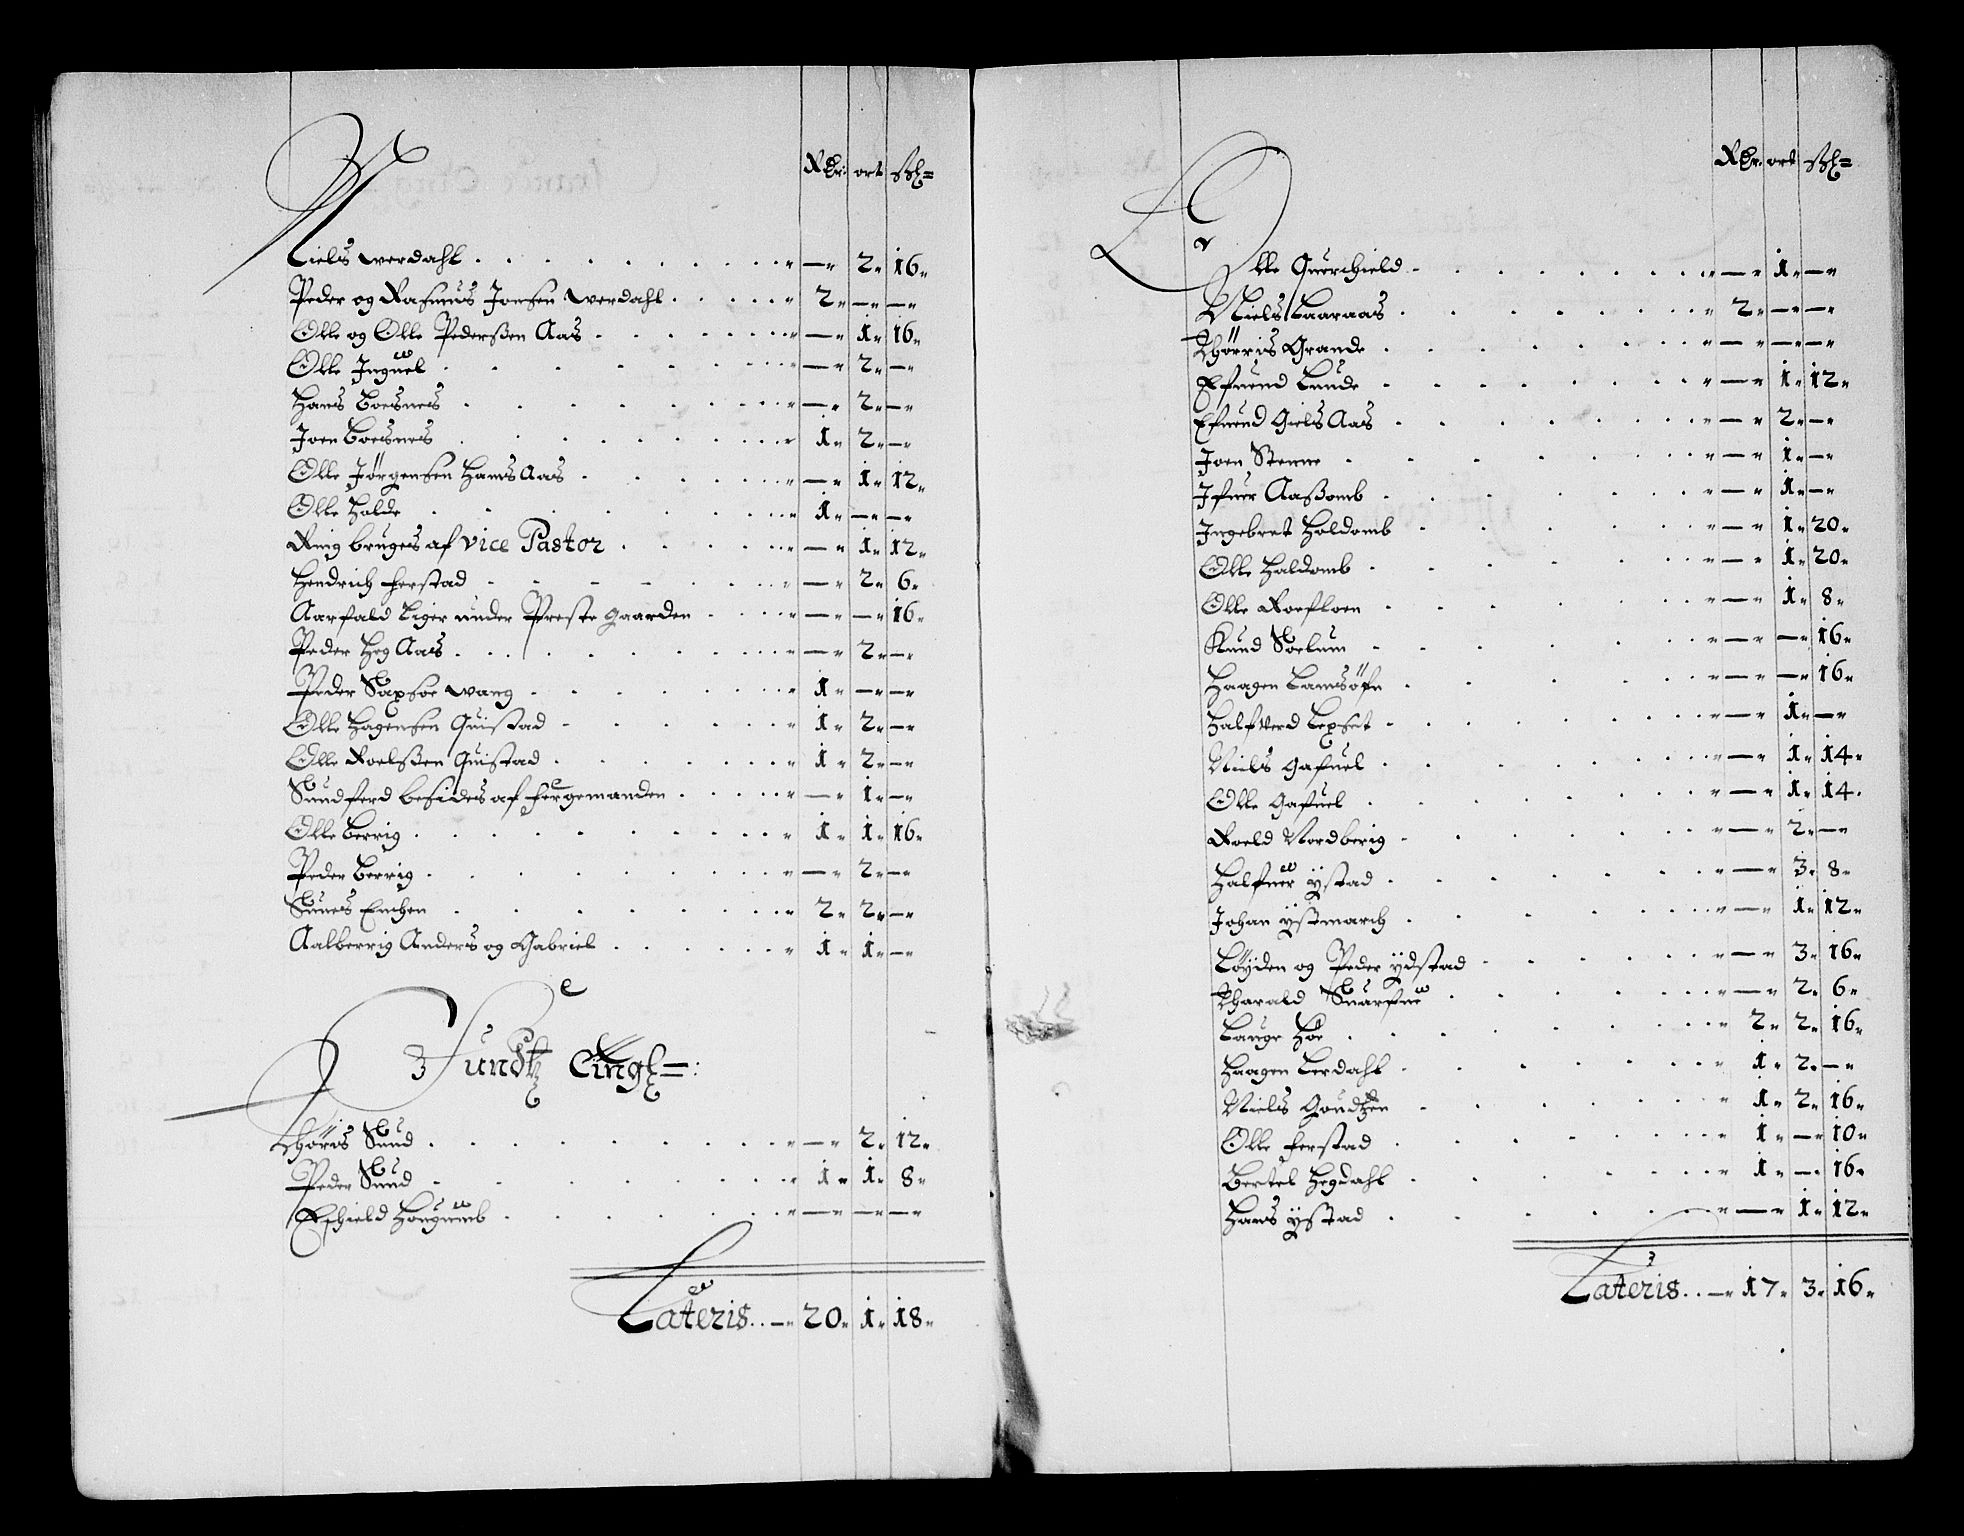 Rdr. ort ßl=
Niels werdahl . . . — 2 16
Peder og Rasmus Jonsen werdahl . . . 2 — —
Olle og Olle Pederßen Aas . . . — 1 16
Olle Inguel . . . — 2 —
Hans Boesnes . . . — 2 —
Joen Boesnes . . . 1 2 —
Olle Jörgensen Hans Aas . . . — 1 12
Olle Holde . . . 1 — —
Ring bruges af vice Pastor . . . — 1 12
Hendrich ferstad . . . — 2 6
Aarfald Liger under Preste gaarden . . . — — 16
Peder Heg Aas . . . — 2 —
Peder Saxsoe wang . . . 1 — —
Olle Hagensen Quistad . . . 1 2 —
Olle Roelßen Quistad . . . 1 2 —
Sundferd besides af fergemanden . . . — 1 —
Olle berrig . . . 1 1 16
Peder berrig . . . — 2 —
Sunes Enchen . . . 2 2 —
Aalberrig Anders og Gabriel . . . 1 1 —
Sundtz Tingl=:
Thöris Sund . . . — 2 12
Peder Sund . . . 1 1 8
Eschield Hougumb . . . — — —
Lateris . . — 20 1 18
Rdr. ort ßl=
Olle Querchield . . . — 1 —
Niels Laaraas . . . 2 — —
Thörris Grande . . . — — —
Efuend Lunde . . . — 1 12
Efuend Giels Aas . . . — 2 —
Joen Stenne . . . — 1 —
Ifuer Aaßomb . . . — 1 —
Ingebret Holdomb . . . — 1 20
Olle Haldomb . . . — 1 20
Olle Roefloen . . . — 1 8
Knud Soelum . . . — — 16
Haagen Lamsöfn . . . — — 16
Halfuerd Lexset . . . — 1 —
Niels Gafuel . . . — 1 14
Olle Gafuel . . . — 1 14
Roeld Nordberig . . . — 2 —
Halfuer ÿstad . . . — 3 8
Johan ÿstmarch . . . — 1 12
Löyden og Peder ÿdstad . . . — 3 16
Tharald Snarfue . . . — 2 6
Lauge Höe . . . 2 2 16
Haagen Lerdahl . . . 1 2 —
Niels Goudtzen . . . 1 2 16
Olle ferstad . . . 1 — 10
Bertel Hegdahl . . . 1 — 16
Hans ÿstad . . . — 1 12
Lateris . . — 17 3 16